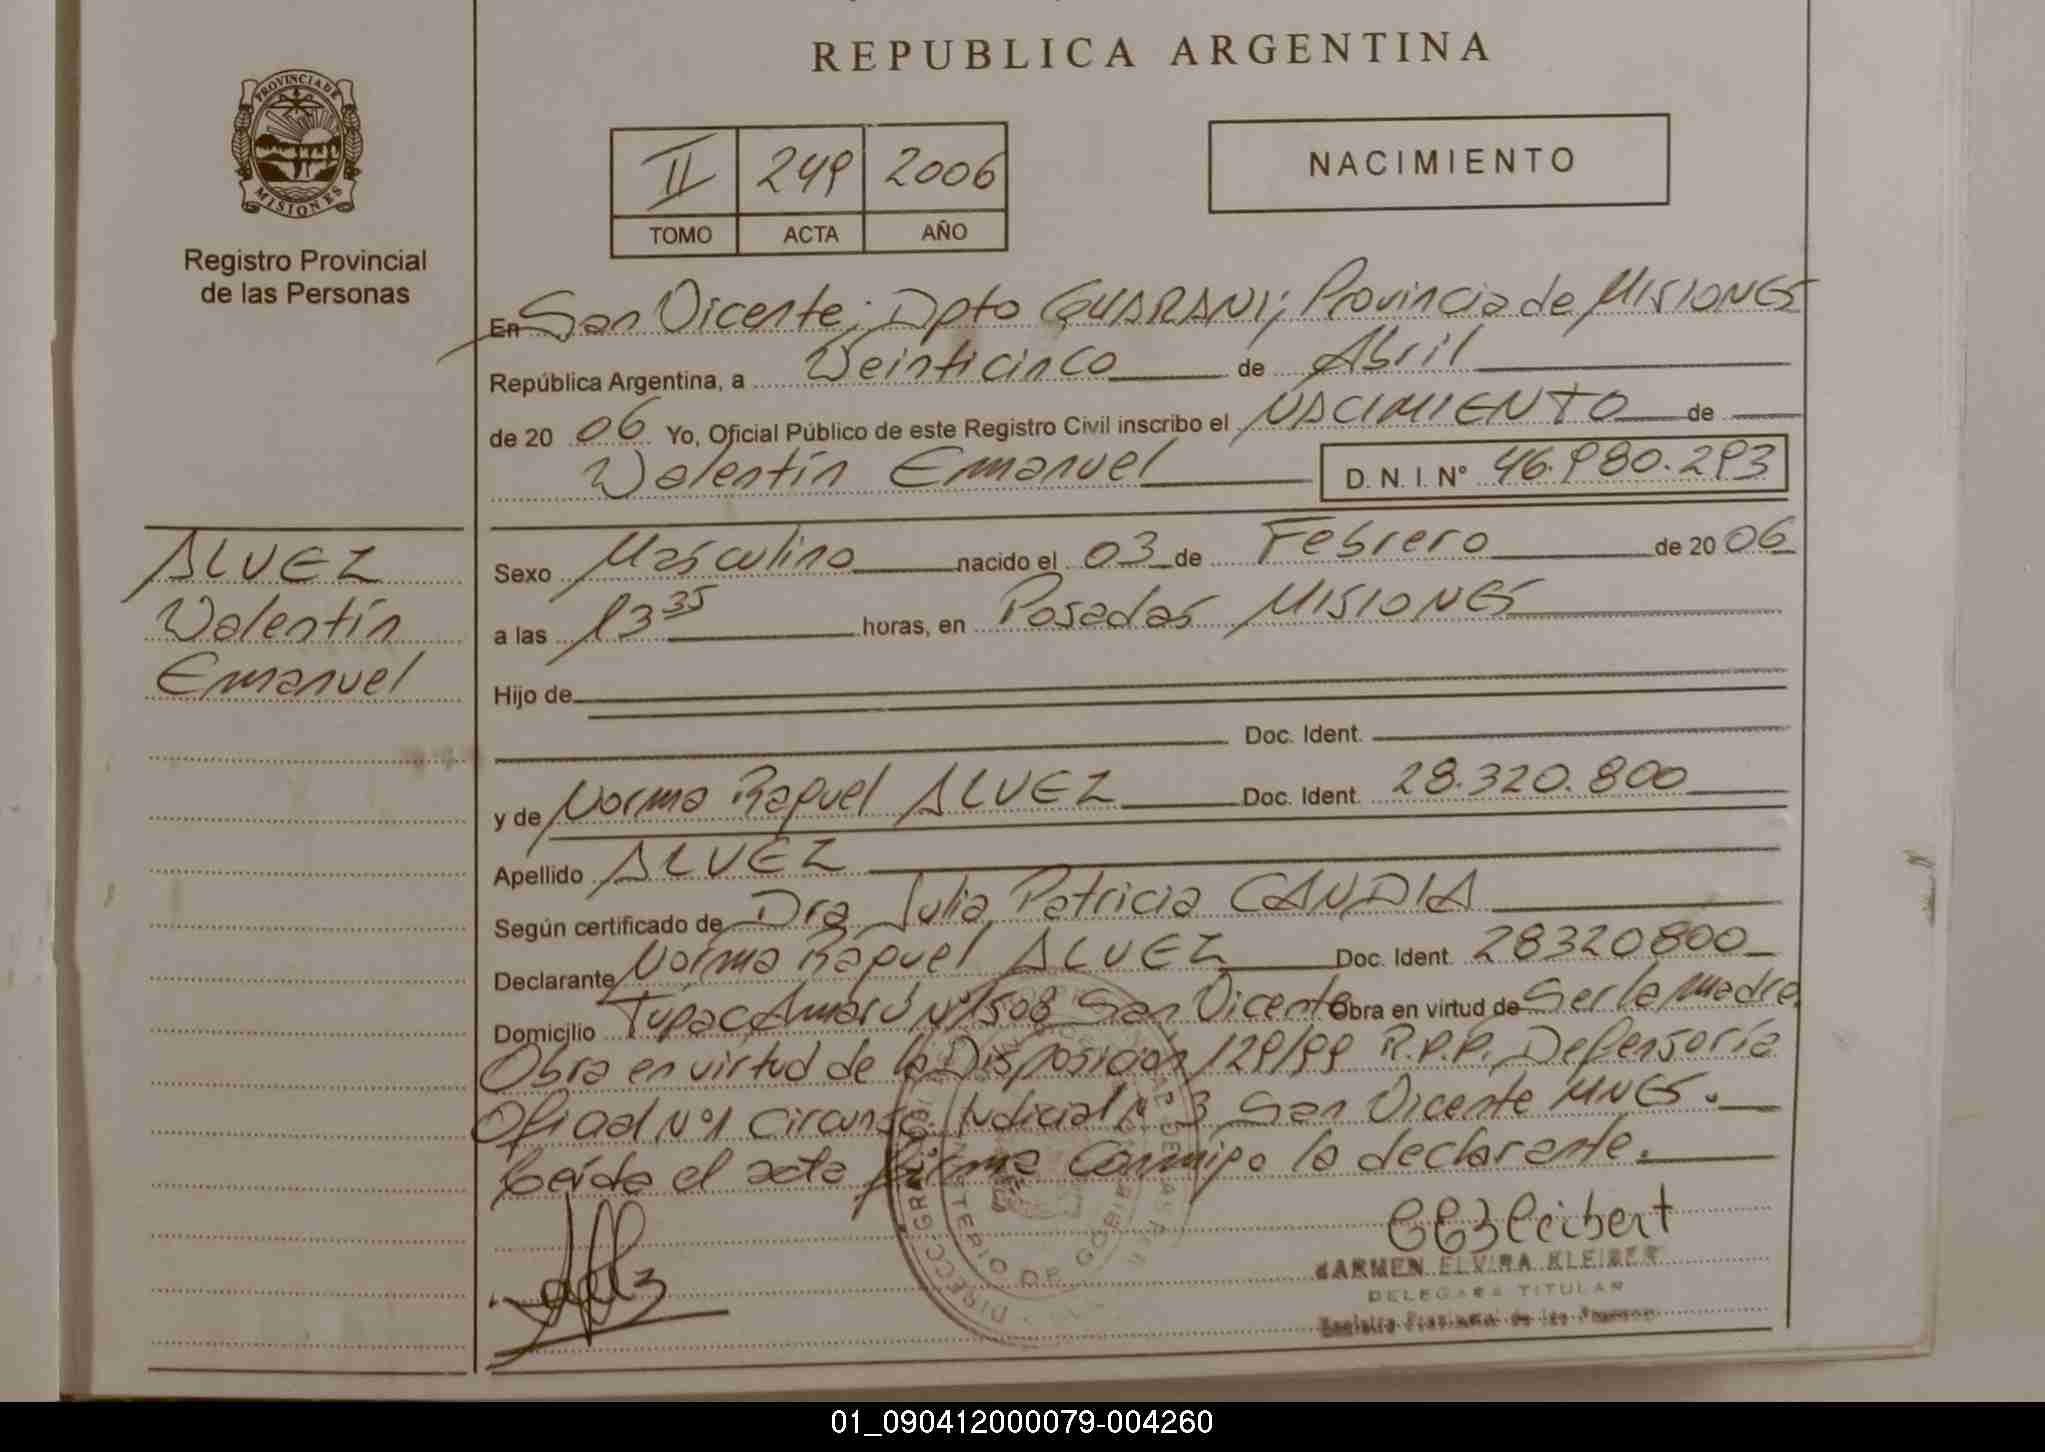 REPUBLICA ARGENTINA
PROVINCIA DE
MISIONES
Registro Provincial
de las Personas
II 249 2006
TOMO ACTA AÑO
NACIMIENTO
En San Vicente; Dpto GUARANI; Provincia de MISIONES
República Argentina, a Veinticinco de Abril
de 2006 Yo, Oficial Público de este Registro Civil inscribo el NACIMIENTO de
Valentín Emanuel D. N. I. Nº 46.980.293
ALVEZ
Valentín
Emanuel
Sexo Masculino nacido el 03 de Febrero de 2006
a las 13 35 horas, en Posadas MISIONES
Hijo de
Doc. Ident.
y de Norma Raquel ALVEZ Doc. Ident. 28.320.800
Apellido ALVEZ
Según certificado de Dra Julia Patricia CANDIA
Declarante Norma Raquel ALVEZ Doc. Ident. 28320800
Domicilio Tupac Amarú Nº 1508 San Vicente Obra en virtud de Ser la madre.
Obra en virtud de la Disposicion 129/99 R.P.P. Defensoría
Oficial Nº1 Circunsc. Judicial Nº 3 San Vicente MNES.
Leída el acta firma Conmigo la declarante.
CARMEN ELVIRA KLEIBER
DELEGADA TITULAR
Registro Provincial de las Personas
MINISTERIO DE GOBIERNO
01_090412000079-004260